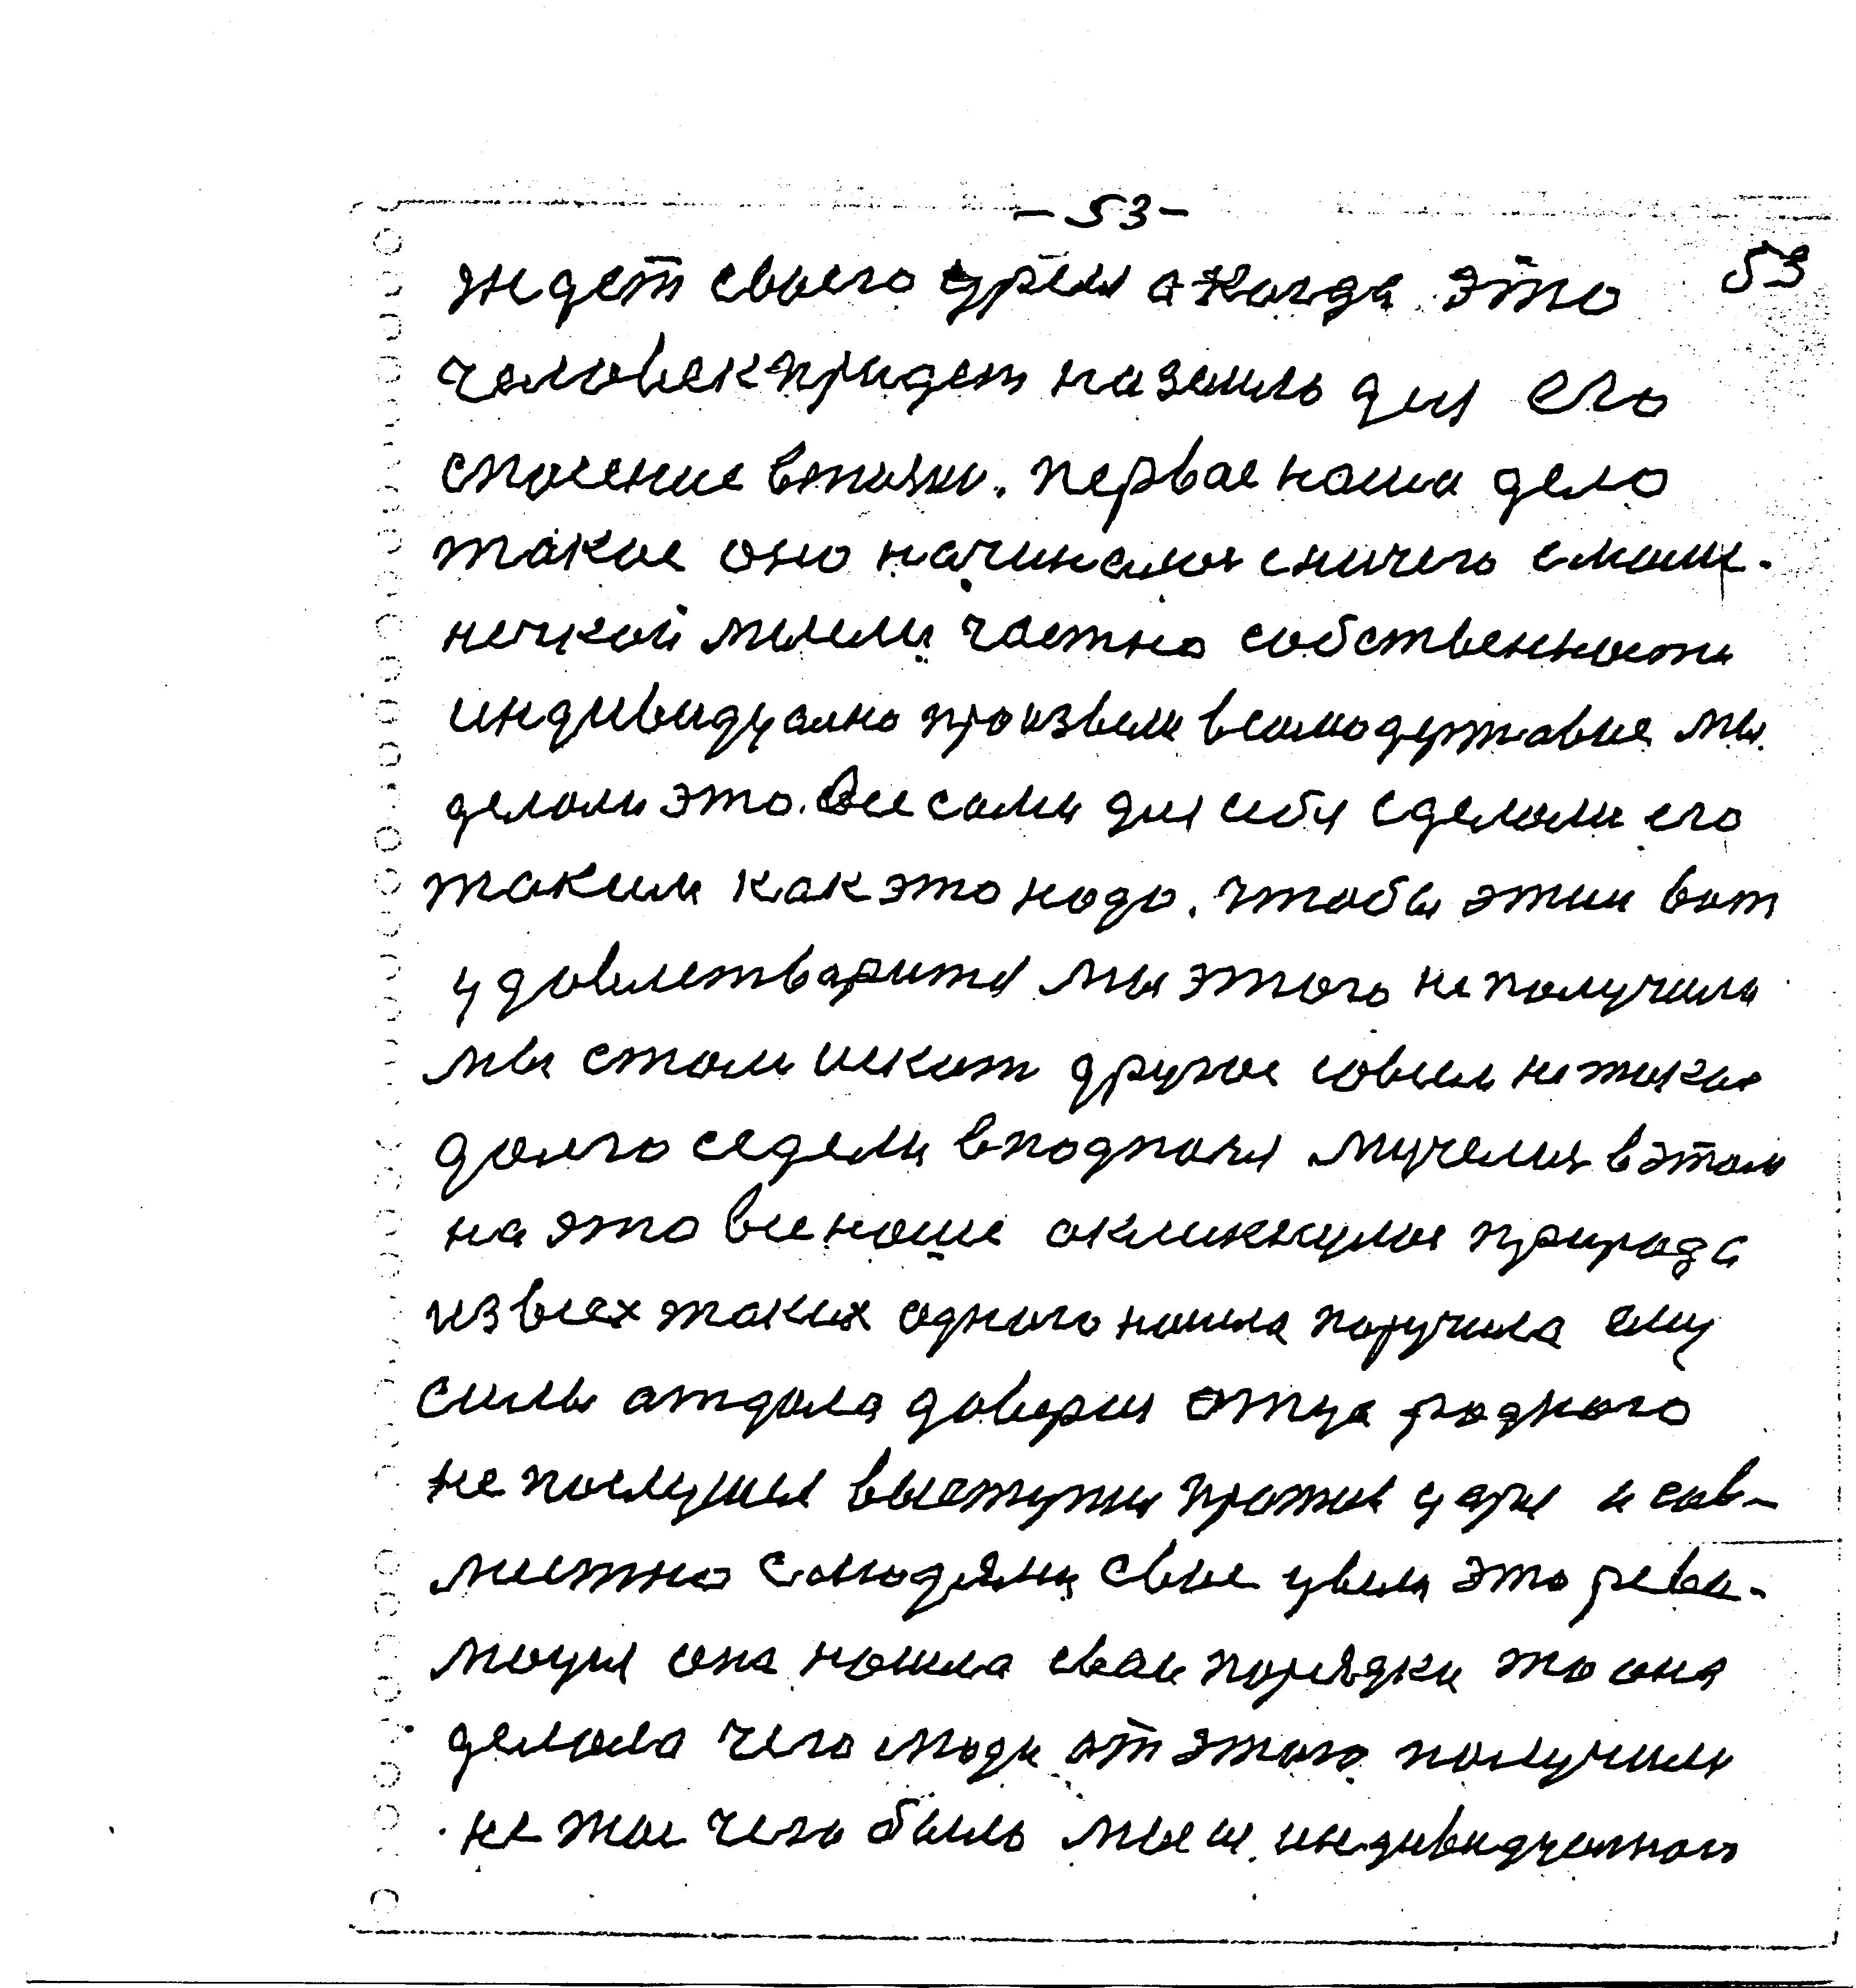 - 53 -
53
ждет своего время а когда это
человек придет на землю для его
спасение в жизни. первае наша дело
такое оно начиналось с ничего с мале-
нечкой мысли частно собственности
индивидуално произвели в самодержавие мы
делали это. Все сами для себя сделали его
таким как это надо. чтобы этим вот
удовлетварится мы этого не получили
мы стали искат другое совсем не такое
долго седели в подполя мучелися в этом
на это все наше окликнулося природа
из всех таких одного нашла поручила ему
силы атдала доверия отца родного
не послушал выступил против царя и сав-
местно с людями свое увели это рева-
люция она нашла сваи порядки то она
делала чего люди от этого получили
не тое чего было мысш индивидуалного